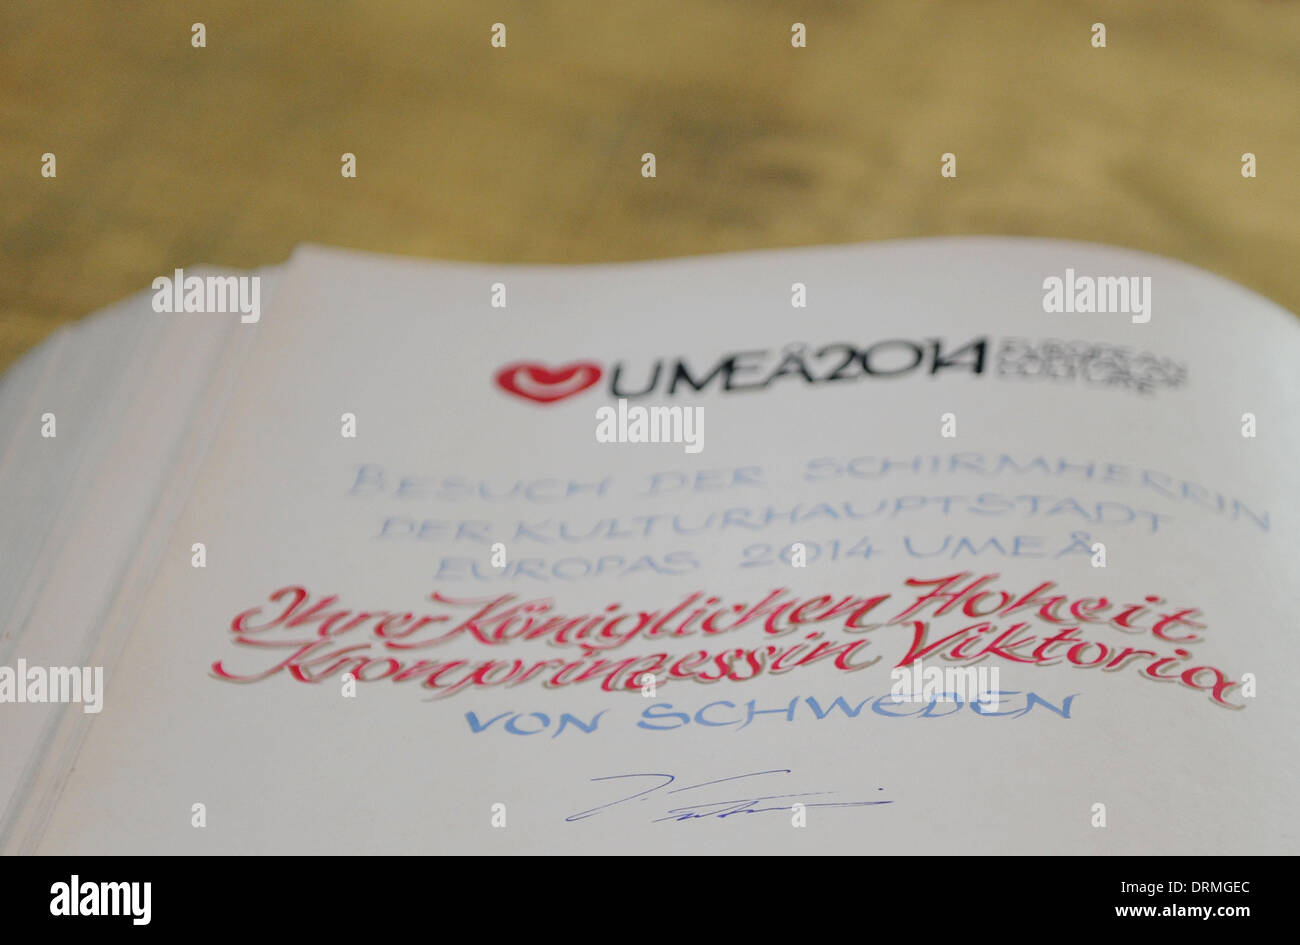 UMEÅ2014 EUROPEAN
CAPITAL OF
CULTURE
BESUCH DER SCHIRMHERRIN
DER KULTURHAUPTSTADT
EUROPAS 2014 UMEÅ
Ihrer Königlichen Hoheit
Kronprinzessin Viktoria
VON SCHWEDEN
alamy
Image ID: DRMGEC
www.alamy.com